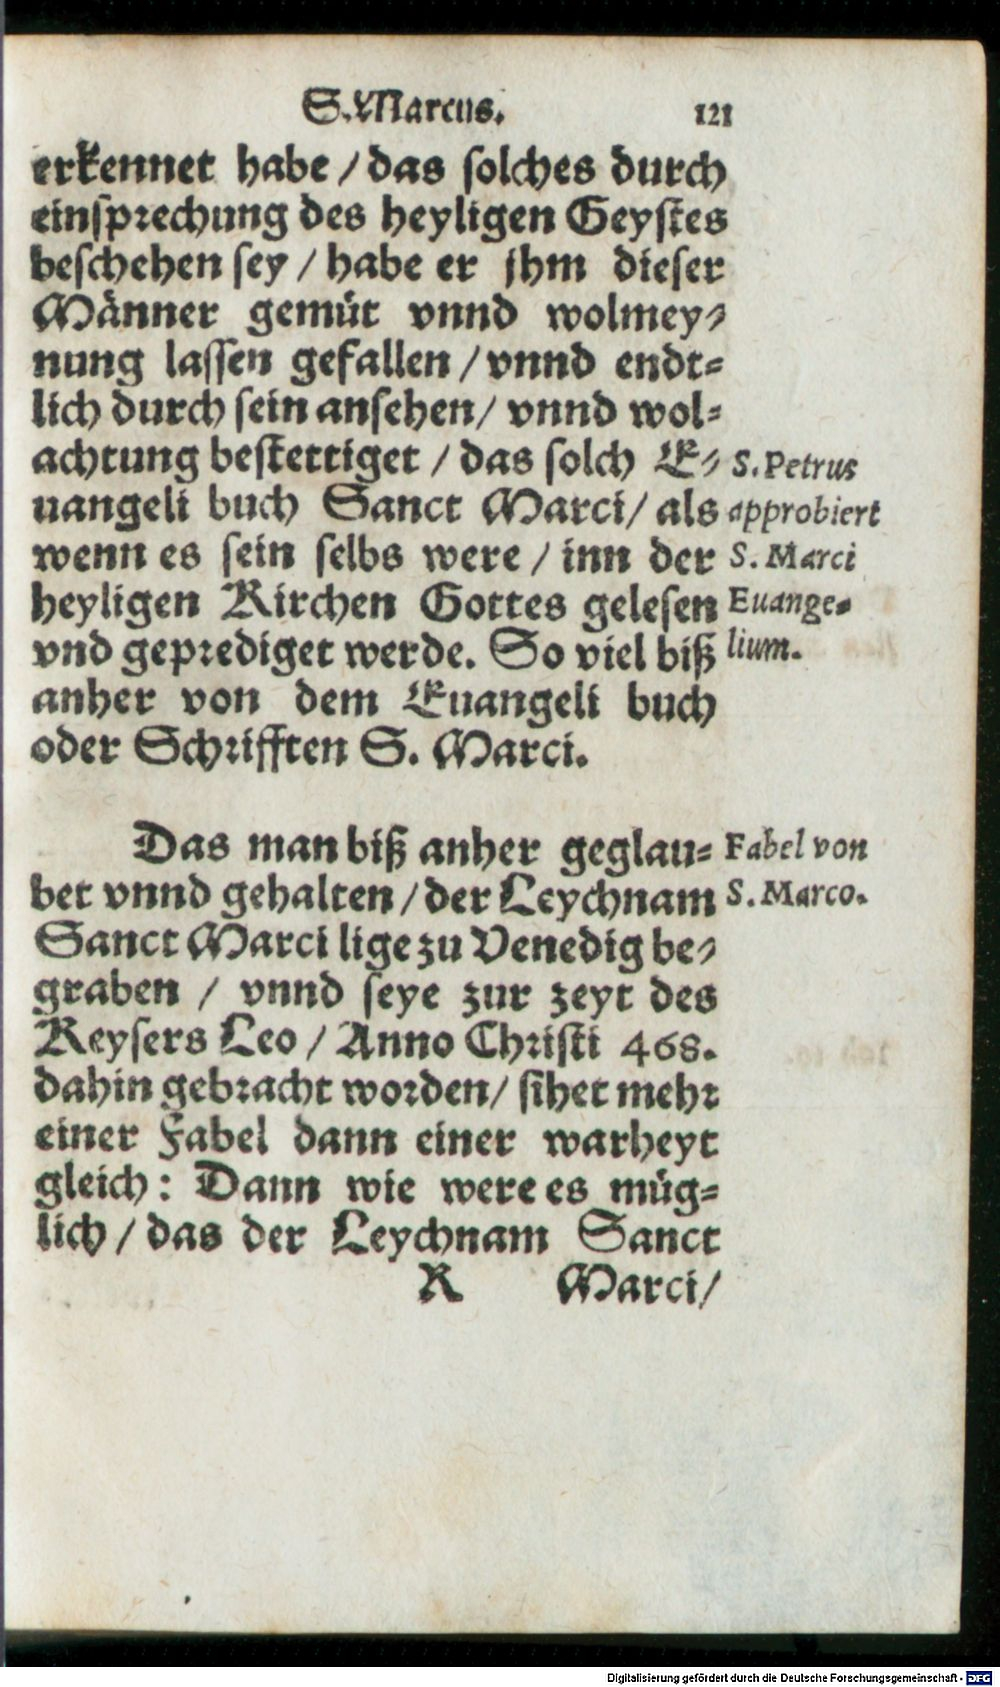 S. Marcus. 121
erkennet habe / das solches durch
einsprechung des heyligen Geystes
beschehen sey / habe er jhm dieser
Männer gemüt vnnd wolmey-
nung lassen gefallen / vnnd endt-
lich durch sein ansehen / vnnd wol-
achtung bestettiget / das solch E-
uangeli buch Sanct Marci / als
wenn es sein selbs were / inn der
heyligen Kirchen Gottes gelesen
vnd geprediget werde. So viel biß
anher von dem Euangeli buch
oder Schrifften S. Marci.
S. Petrus
approbiert
S. Marci
Euange-
lium.
Das man biß anher geglau-
bet vnnd gehalten / der Leychnam
Sanct Marci lige zu Venedig be-
graben / vnnd seye zur zeyt des
Keysers Leo / Anno Christi 468.
dahin gebracht worden / sihet mehr
einer Fabel dann einer warheyt
gleich : Dann wie were es müg-
lich / das der Leychnam Sanct
Fabel von
S. Marco.
R Marci /
Digitalisierung gefördert durch die Deutsche Forschungsgemeinschaft - DFG